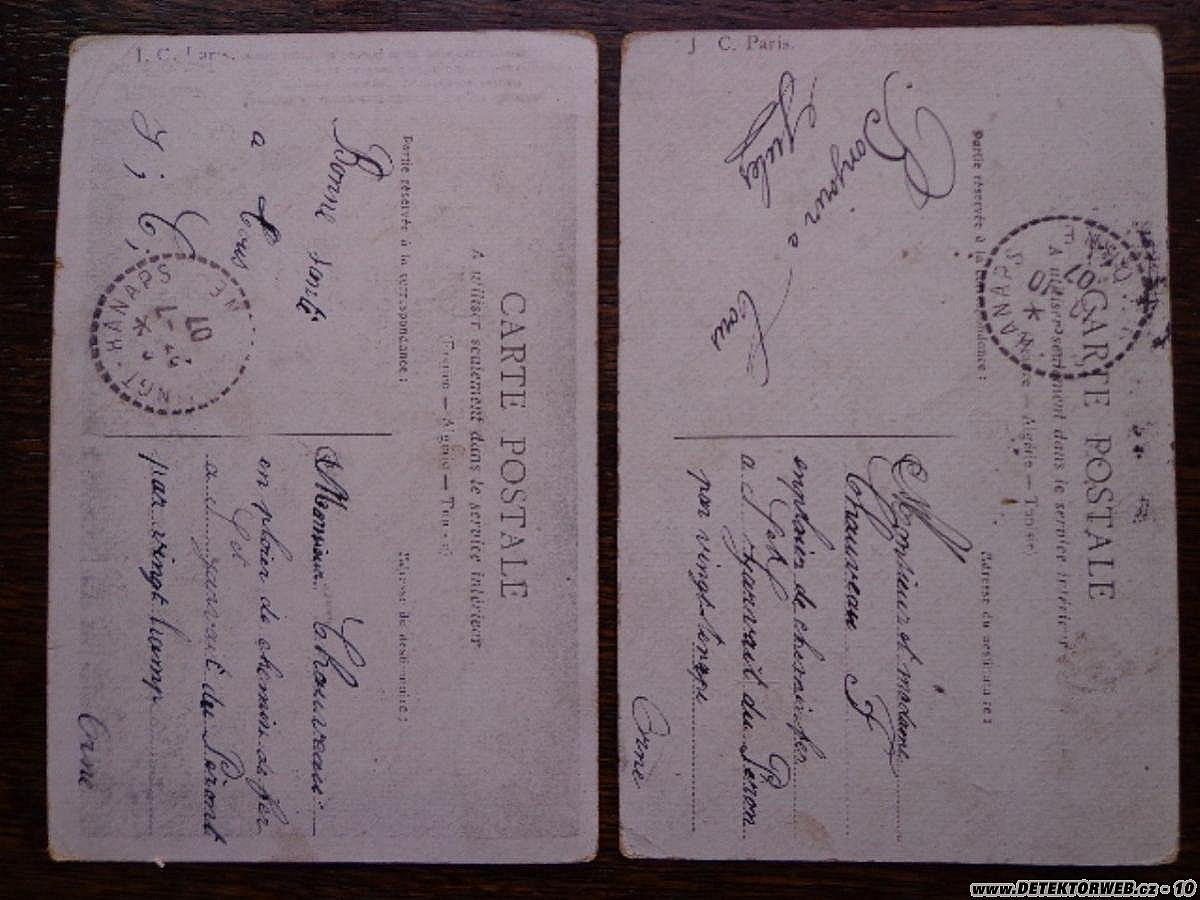 J. C. Paris.
CARTE POSTALE
A utiliser seulement dans le service intérieur
(France — Algérie — Tunisie)
Partie réservée à la correspondance :
Adresse du destinataire :
Bonne santé
a tous
J; C;
VINGT-HANAPS
07
ORNE
Monsieur Chauveau
en ploier de chemin de fer
a
par vingt hanap
Orne
J C. Paris.
CARTE POSTALE
A utiliser seulement dans le service intérieur
(France — Algérie — Tunisie)
Partie réservée à la correspondance :
Adresse du destinataire :
Bonjour a tous
Jules
HANAPS
07
Monsieur et madame
Chauveau F
emploier de chemin fer
a
par vingt
Orne
www.DETEKTORWEB.cz - 10